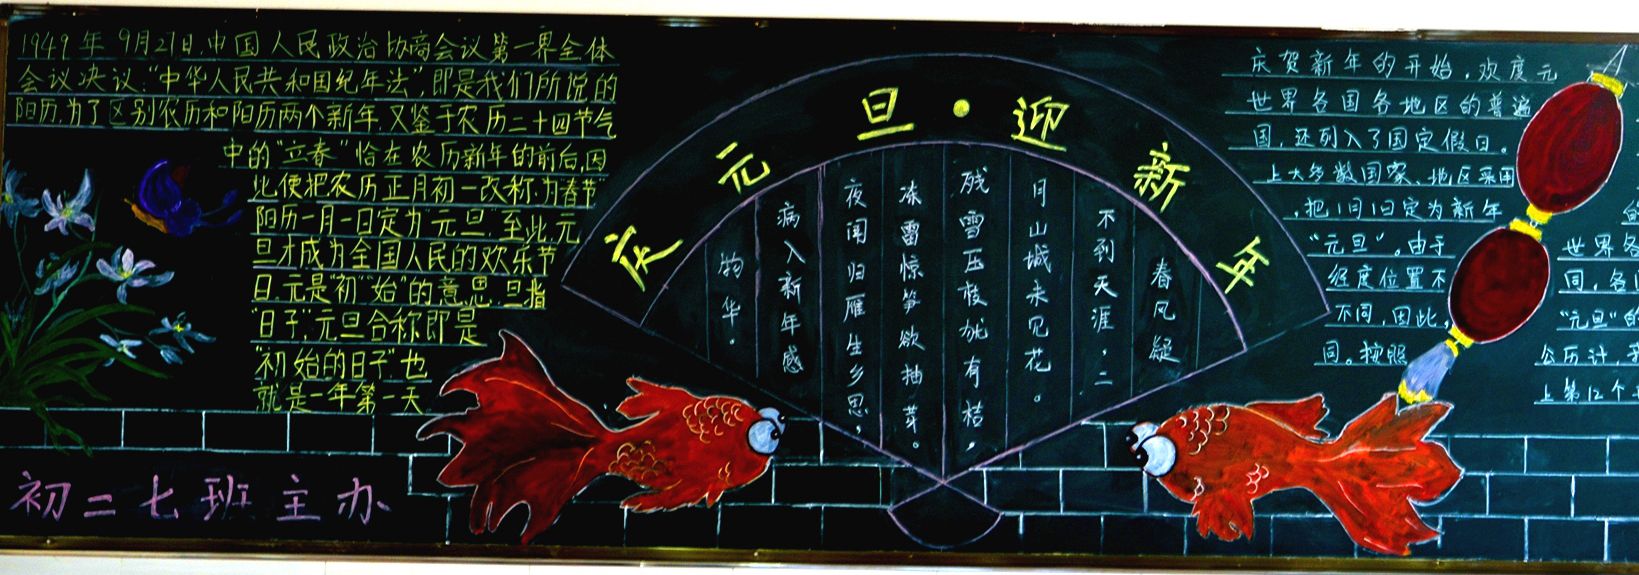 1949年9月27日,中国人民政治协商会议第一界全体
会议决议:“中华人民共和国纪年法”,即是我们所说的
阳历,为了区别农历和阳历两个新年,又鉴于农历二十四节气
中的“立春”恰在农历新年的前后,因
此便把农历正月初一改称为“春节”
阳历一月一日定为“元旦”,至此,元
旦才成为全国人民的欢乐节
日,元是“初”“始”的意思,旦指
“日子”,元旦合称即是
“初始的日子”也
就是一年第一天
初二七班主办
庆元旦·迎新年
春风疑
不到天涯，二
月山城未见花。
残雪压枝犹有桔，
冻雷惊笋欲抽芽。
夜闻归雁生乡思，
病入新年感
物华。
庆贺新年的开始，欢度元
世界各国各地区的普遍
国，还列入了国定假日。
上大多数国家、地区采用
，把1月1日定为新年
“元旦”。由于
经度位置不
不同，因此，
同。按照
世界各
同，各
“元旦”的
公历计，
上第12个